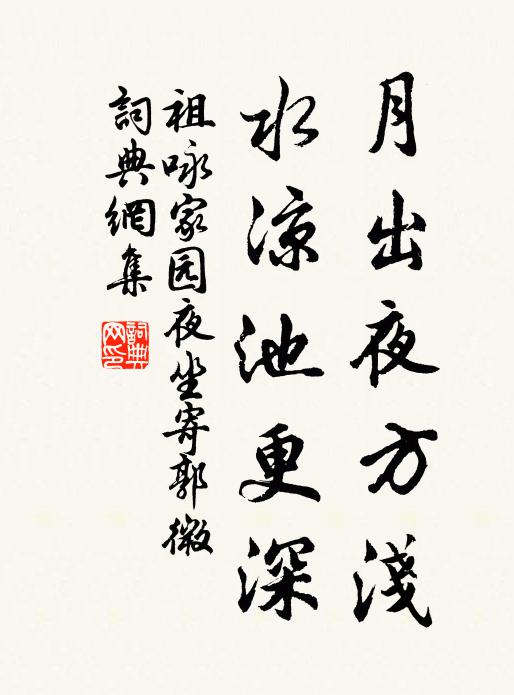 月出夜方淺
水涼池更深
祖咏家园夜坐寄郭微
詞典網集
詞典网印